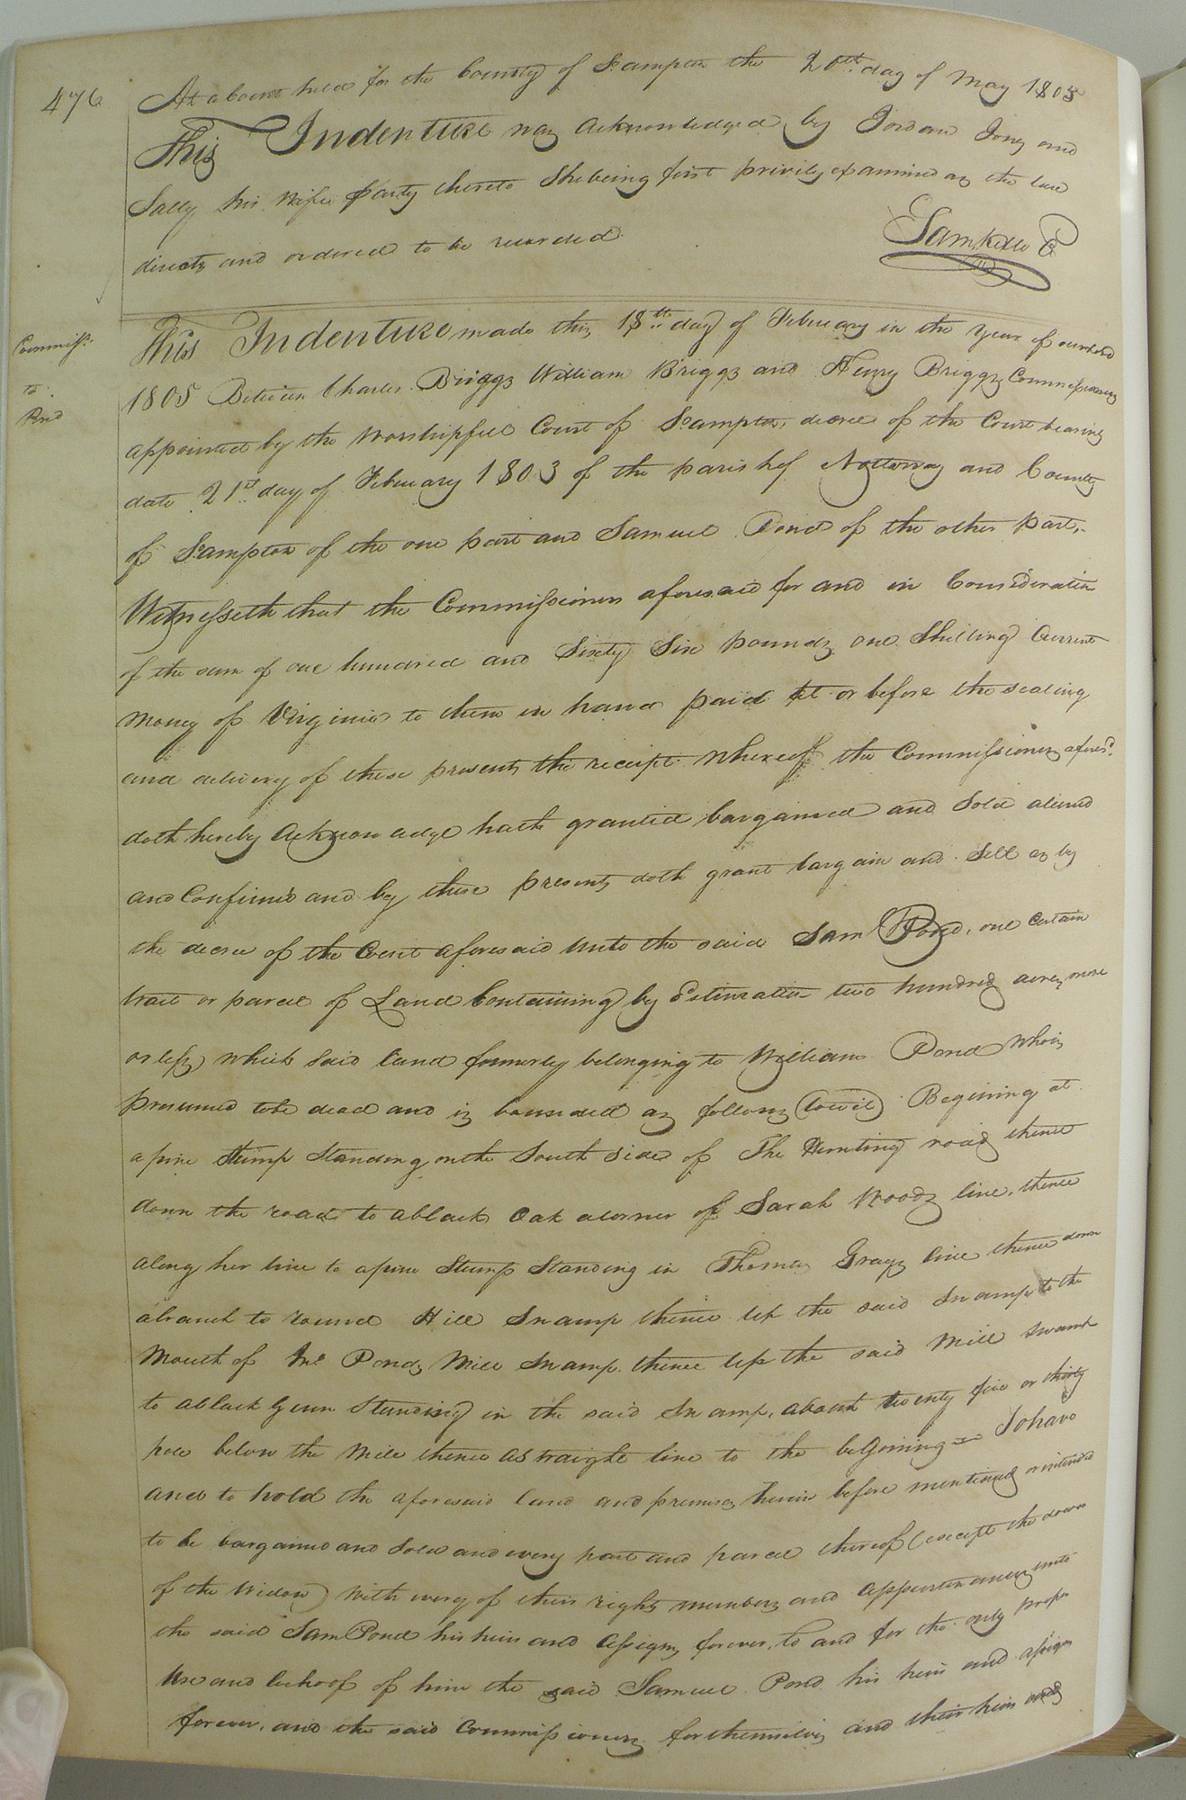 476
At a Court held for the County of S:ampton the 20th day of May 1805
This Indenture was acknowledged by Jordan Jones and
Sally his wife party thereto She being first privily examined as the law
directs and ordered to be recorded
Sam Kello C
Commiss:
to:
Pond
This Indenture made this 18th day of February in the year of our Lord
1805 Between Charles Briggs William Briggs and Henry Briggs Commissioners
appointed by the Worshipfull Court of S:ampton, decree of the Court bearing
date 21st day of February 1803 of the parish of Nottoway and County
of S:ampton of the one part and Samuel Pond of the other part,
Witnesseth that the Commissioners aforesaid for and in Consideration
of the sum of one hundred and Sixty Six pounds one Shilling Current
money of Virginia to them in hand paid at or before the sealing
and delivery of these presents the receipt whereoff the Commissioners aforesd.
doth hereby acknowledge hath granted bargained and Sold aliend
and Confirmd and by these presents doth grant bargain and Sell as by
the decree of the Court aforesaid unto the said Sam Pond, one Certain
tract or parcel of Land Containing by Estimation two hundred acres, more
or less, which said land formerly belonging to William Pond who is
presumed to be dead and is bounded as follows (towit) Begining at
a pine Stump Standing on the South Side of The Hunting road thence
down the road to a black Oak a corner of Sarah Woods line, thence
along her line to a pine Stump Standing in Thomas Grays line thence down
a branch to round Hill Swamp thence up the said Swamp to the
Mouth of Jno Ponds Mill Swamp thence up the said Mill Swamp
to a black Gum Standing in the said Swamp, about twenty five or thirty
pole below the Mill thence a Straight line to the begining = To have
and to hold the aforesaid land and premises herein before mentioned or intended
to be bargained and Sold and every part and parcel thereof (except the dower
of the Widow) with every of their rights members and appurtenances unto
the said Sam Pond his heirs and assigns forever, to and for the only proper
Use and behoof of him the said Samuel Pond his heirs and assigns
forever, and the said Commissioners for themselves and their heirs and